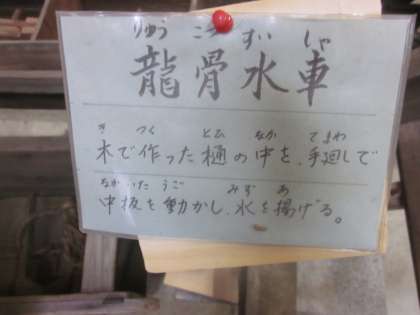 りゅう こつ すい しゃ
龍骨水車
き つく とひ なか てまわ
木で作った樋の中を、手廻しで
なかいた うご みず あ
中板を動かし、水を揚げる。